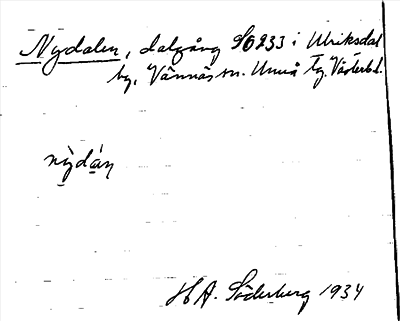 Nydalen, dalgång S6233 i Ulriksdal
by, Vännäs sn. Umeå tg. Västerb.l.
nỳdán
H A. Söderberg 1934